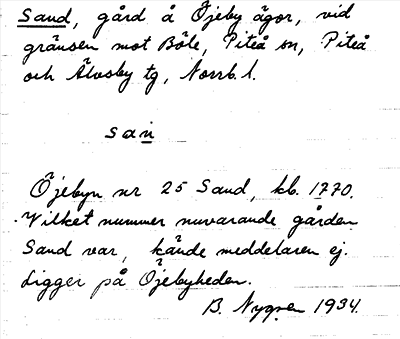 Sand, gård å Öjeby ägor, vid
gränsen mot Böle, Piteå sn, Piteå
och Älvsby tg, Norrb. l.
san
Öjebyn nr 25 Sand, kb. 1770.
Vilket nummer nuvarande gården
Sand var, kände meddelaren ej.
Ligger på Öjebyheden.
B. Nygren 1934.